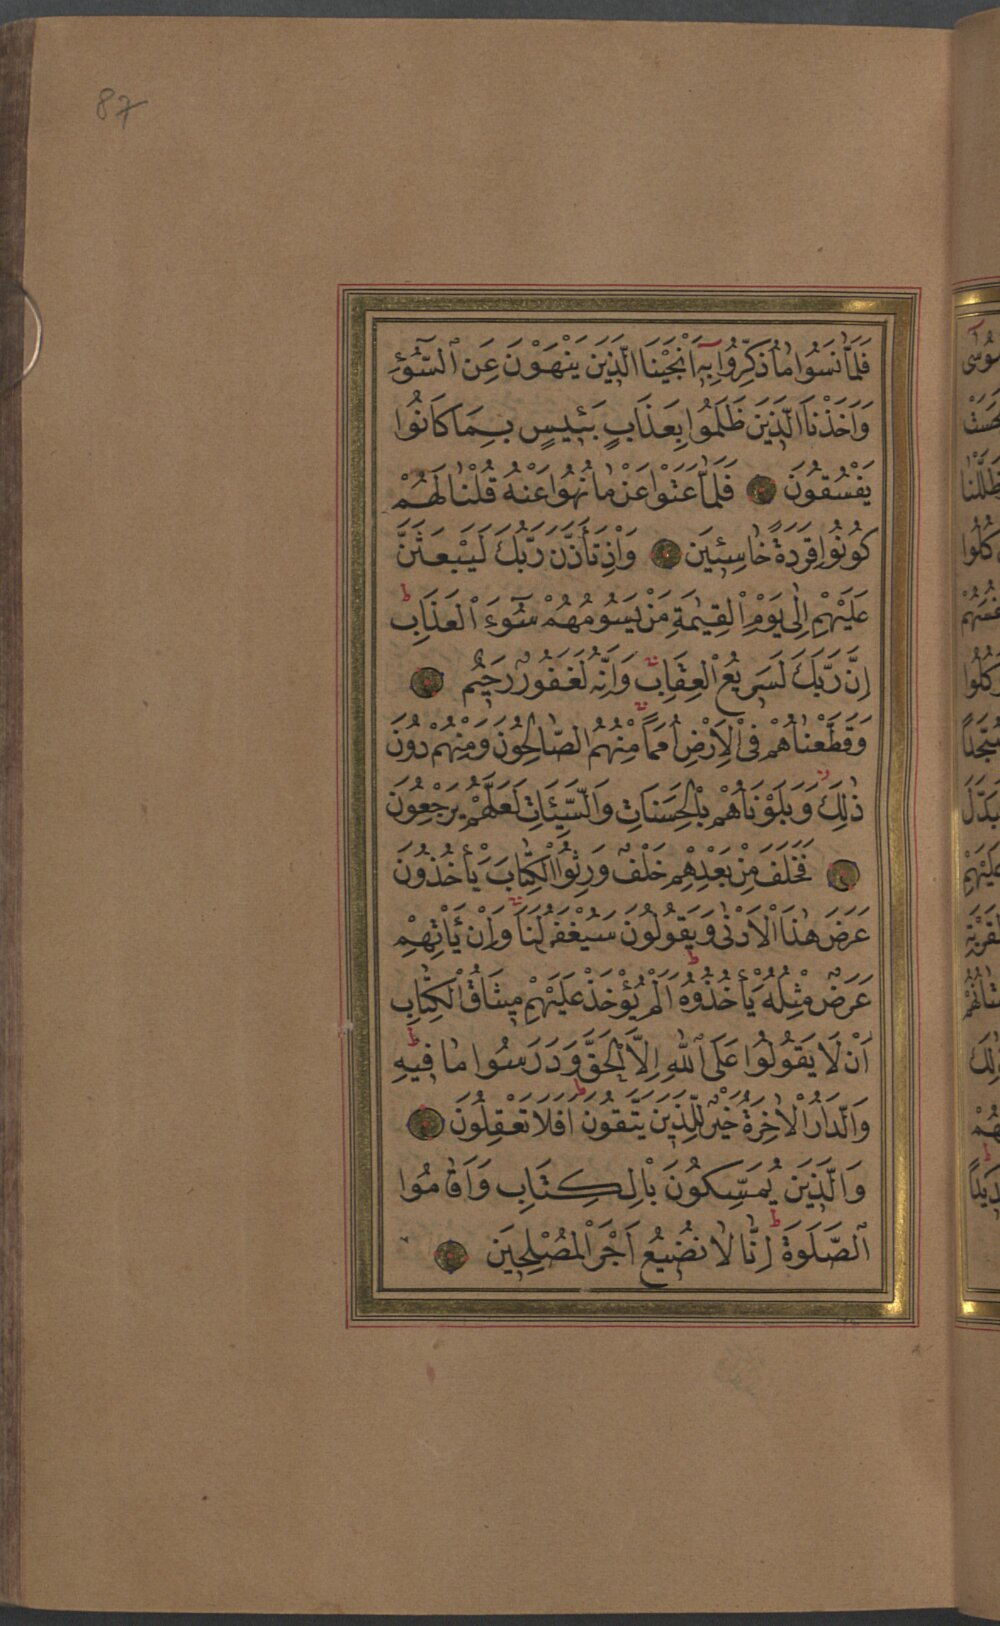 87
فَلَمَّا نَسُوا مَا ذُكِّرُوا بِهٖٓ اَنْجَيْنَا الَّذٖينَ يَنْهَوْنَ عَنِ السُّٓوءِ
وَاَخَذْنَا الَّذٖينَ ظَلَمُوا بِعَذَابٍ بَـٖٔيسٍ بِمَا كَانُوا
يَفْسُقُونَ فَلَمَّا عَتَوْا عَنْ مَا نُهُوا عَنْهُ قُلْنَا لَهُمْ
كُونُوا قِرَدَةً خَاسِـٖٔينَ وَاِذْ تَاَذَّنَ رَبُّكَ لَيَبْعَثَنَّ
عَلَيْهِمْ اِلٰى يَوْمِ الْقِيٰمَةِ مَنْ يَسُومُهُمْ سُٓوءَ الْعَذَابِ ط
اِنَّ رَبَّكَ لَسَرٖيعُ الْعِقَابِ وَاِنَّهُ لَغَفُورٌ رَحٖيمٌ
وَقَطَّعْنَاهُمْ فِى الْاَرْضِ اُمَمًا مِنْهُمُ الصَّالِحُونَ وَمِنْهُمْ دُونَ
ذٰلِكَ وَبَلَوْنَاهُمْ بِالْحَسَنَاتِ وَالسَّيِّئَاتِ لَعَلَّهُمْ يَرْجِعُونَ
فَخَلَفَ مِنْ بَعْدِهِمْ خَلْفٌ وَرِثُوا الْكِتَابَ يَأْخُذُونَ
عَرَضَ هٰذَا الْاَدْنٰى وَيَقُولُونَ سَيُغْفَرُ لَنَا وَاِنْ يَأْتِهِمْ
عَرَضٌ مِثْلُهُ يَأْخُذُوهُ ط اَلَمْ يُؤْخَذْ عَلَيْهِمْ مٖيثَاقُ الْكِتَابِ
اَنْ لَا يَقُولُوا عَلَى اللّٰهِ اِلَّا الْحَقَّ وَدَرَسُوا مَا فٖيهِ ط
وَالدَّارُ الْاٰخِرَةُ خَيْرٌ لِلَّذٖينَ يَتَّقُونَ ط اَفَلَا تَعْقِلُونَ
وَالَّذٖينَ يُمَسِّكُونَ بِالْكِتَابِ وَاَقَامُوا
الصَّلٰوةَ ط اِنَّا لَا نُضٖيعُ اَجْرَ الْمُصْلِحٖينَ